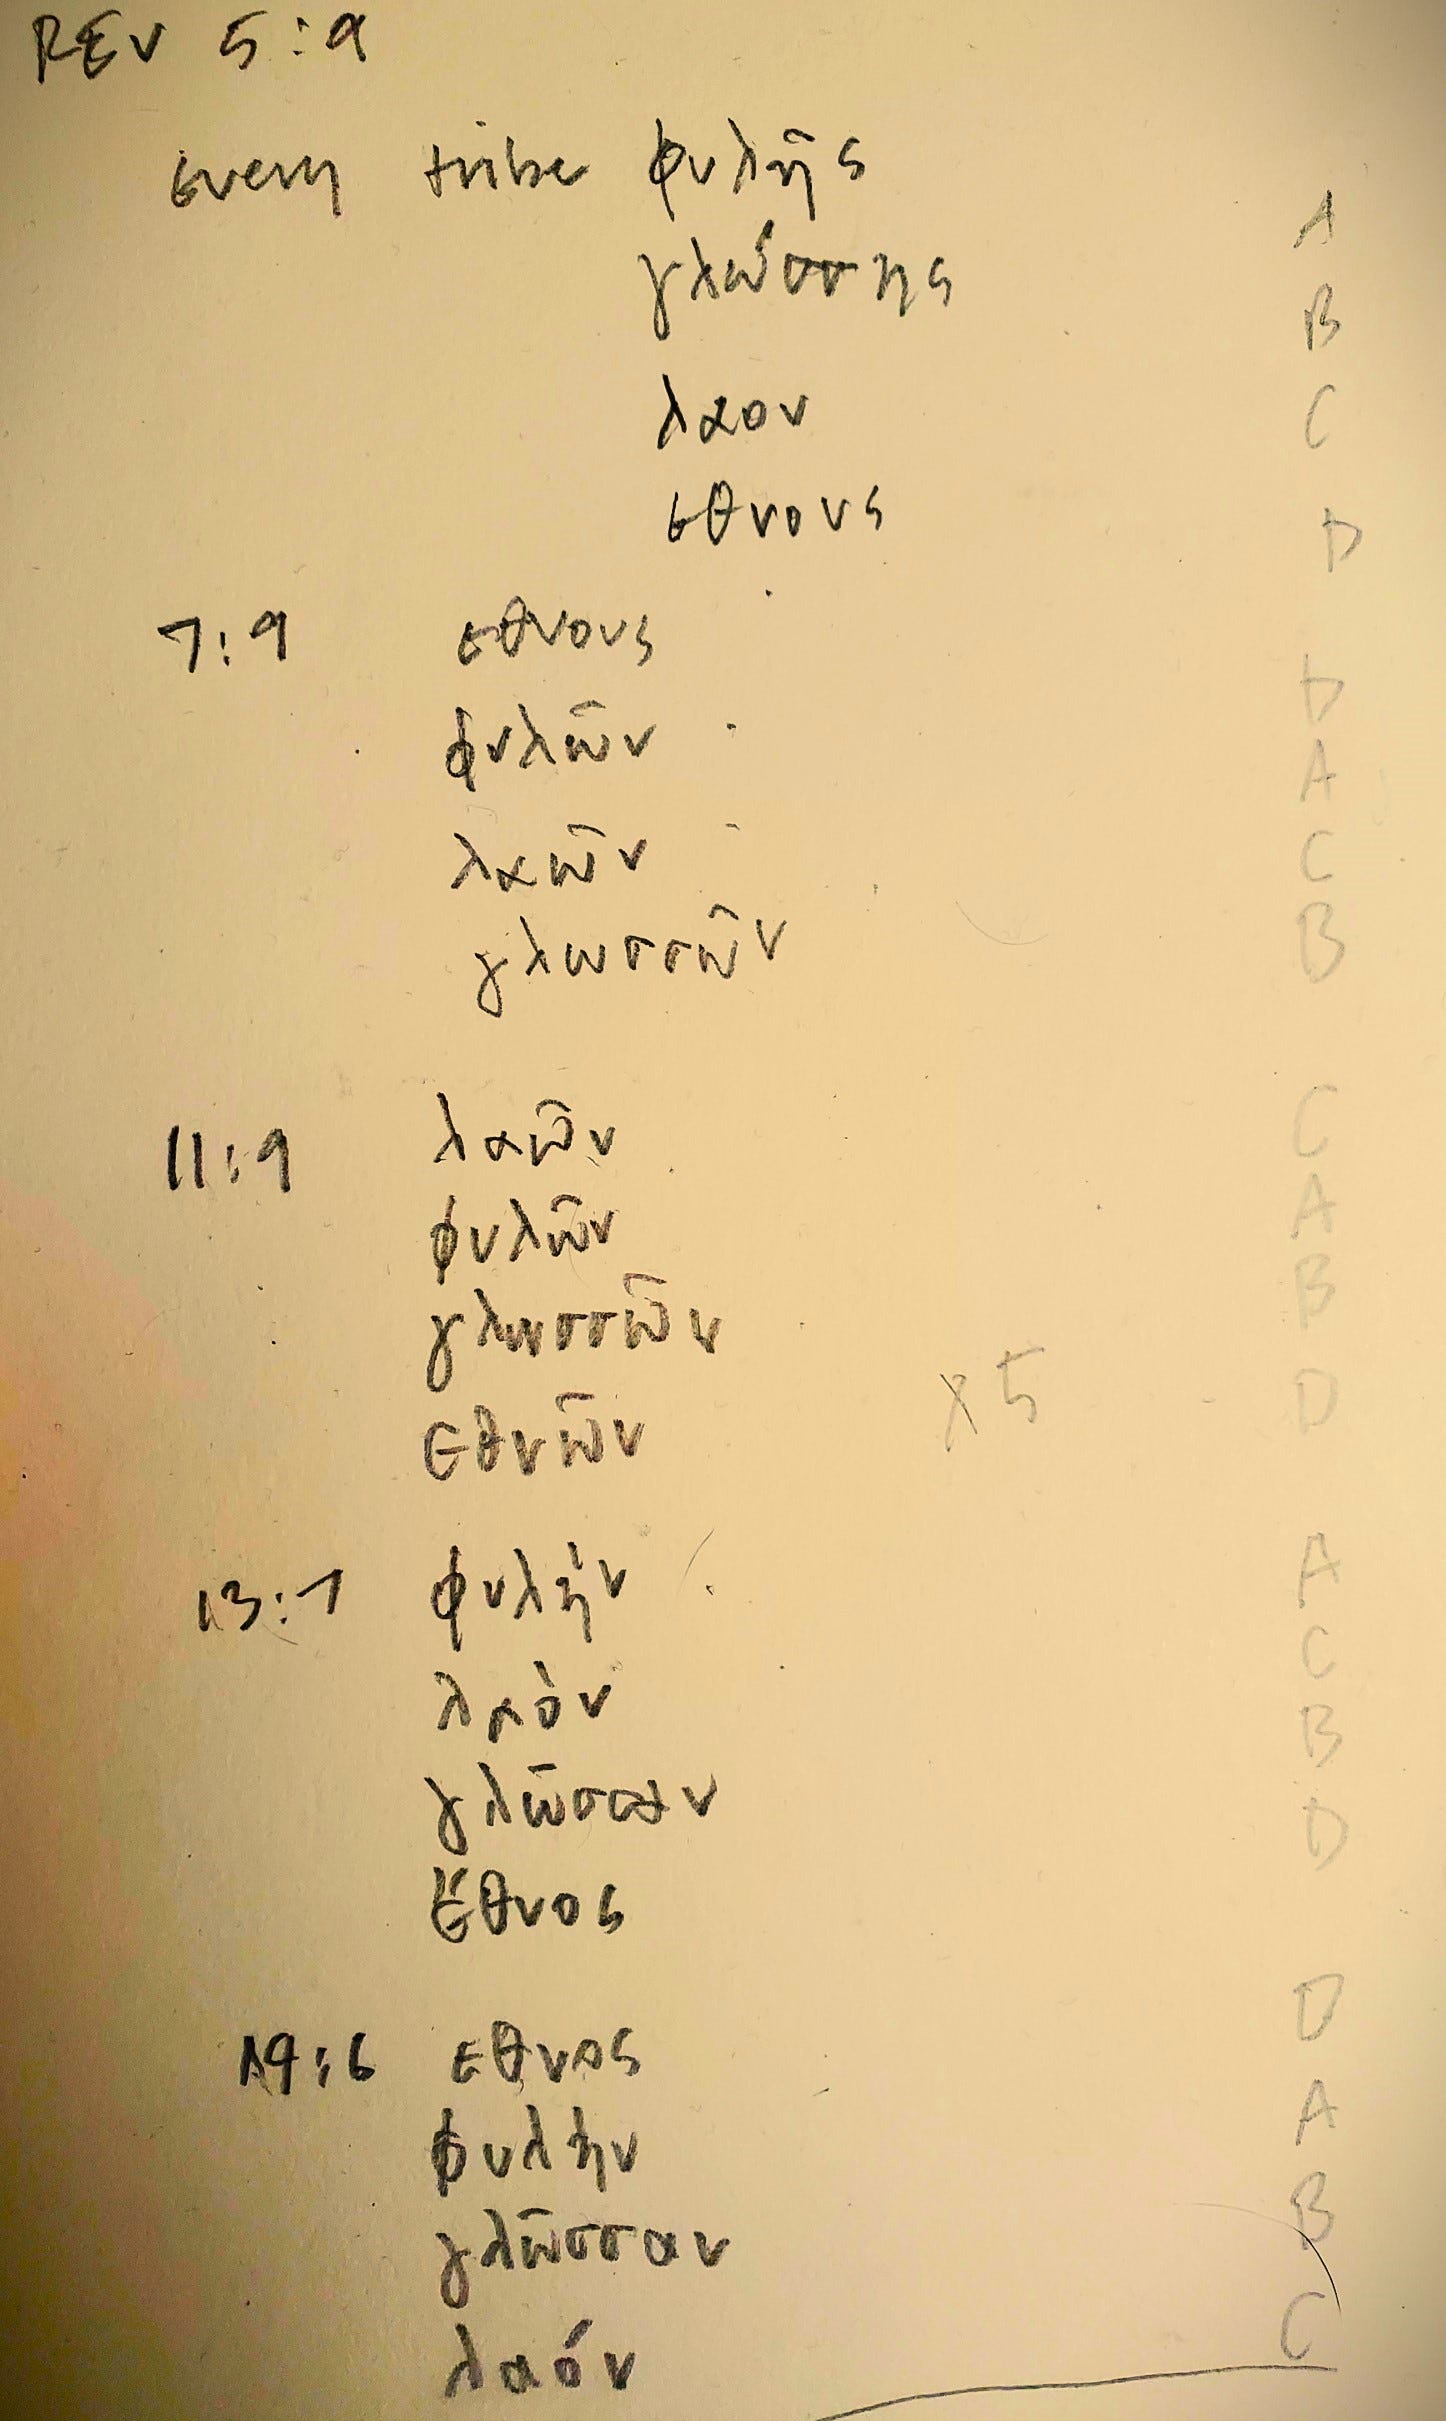 REV 5:9
every tribe φυλῆς A
γλώσσης B
λαον C
εθνους D
7:9 εθνους D
φυλῶν A
λαῶν C
γλωσσῶν B
11:9 λαῶν C
φυλῶν A
γλωσσῶν B
εθνῶν x5 D
13:7 φυλὴν A
λαὸν C
γλῶσσαν B
ἔθνος D
14:6 εθνος D
φυλὴν A
γλῶσσαν B
λαόν C